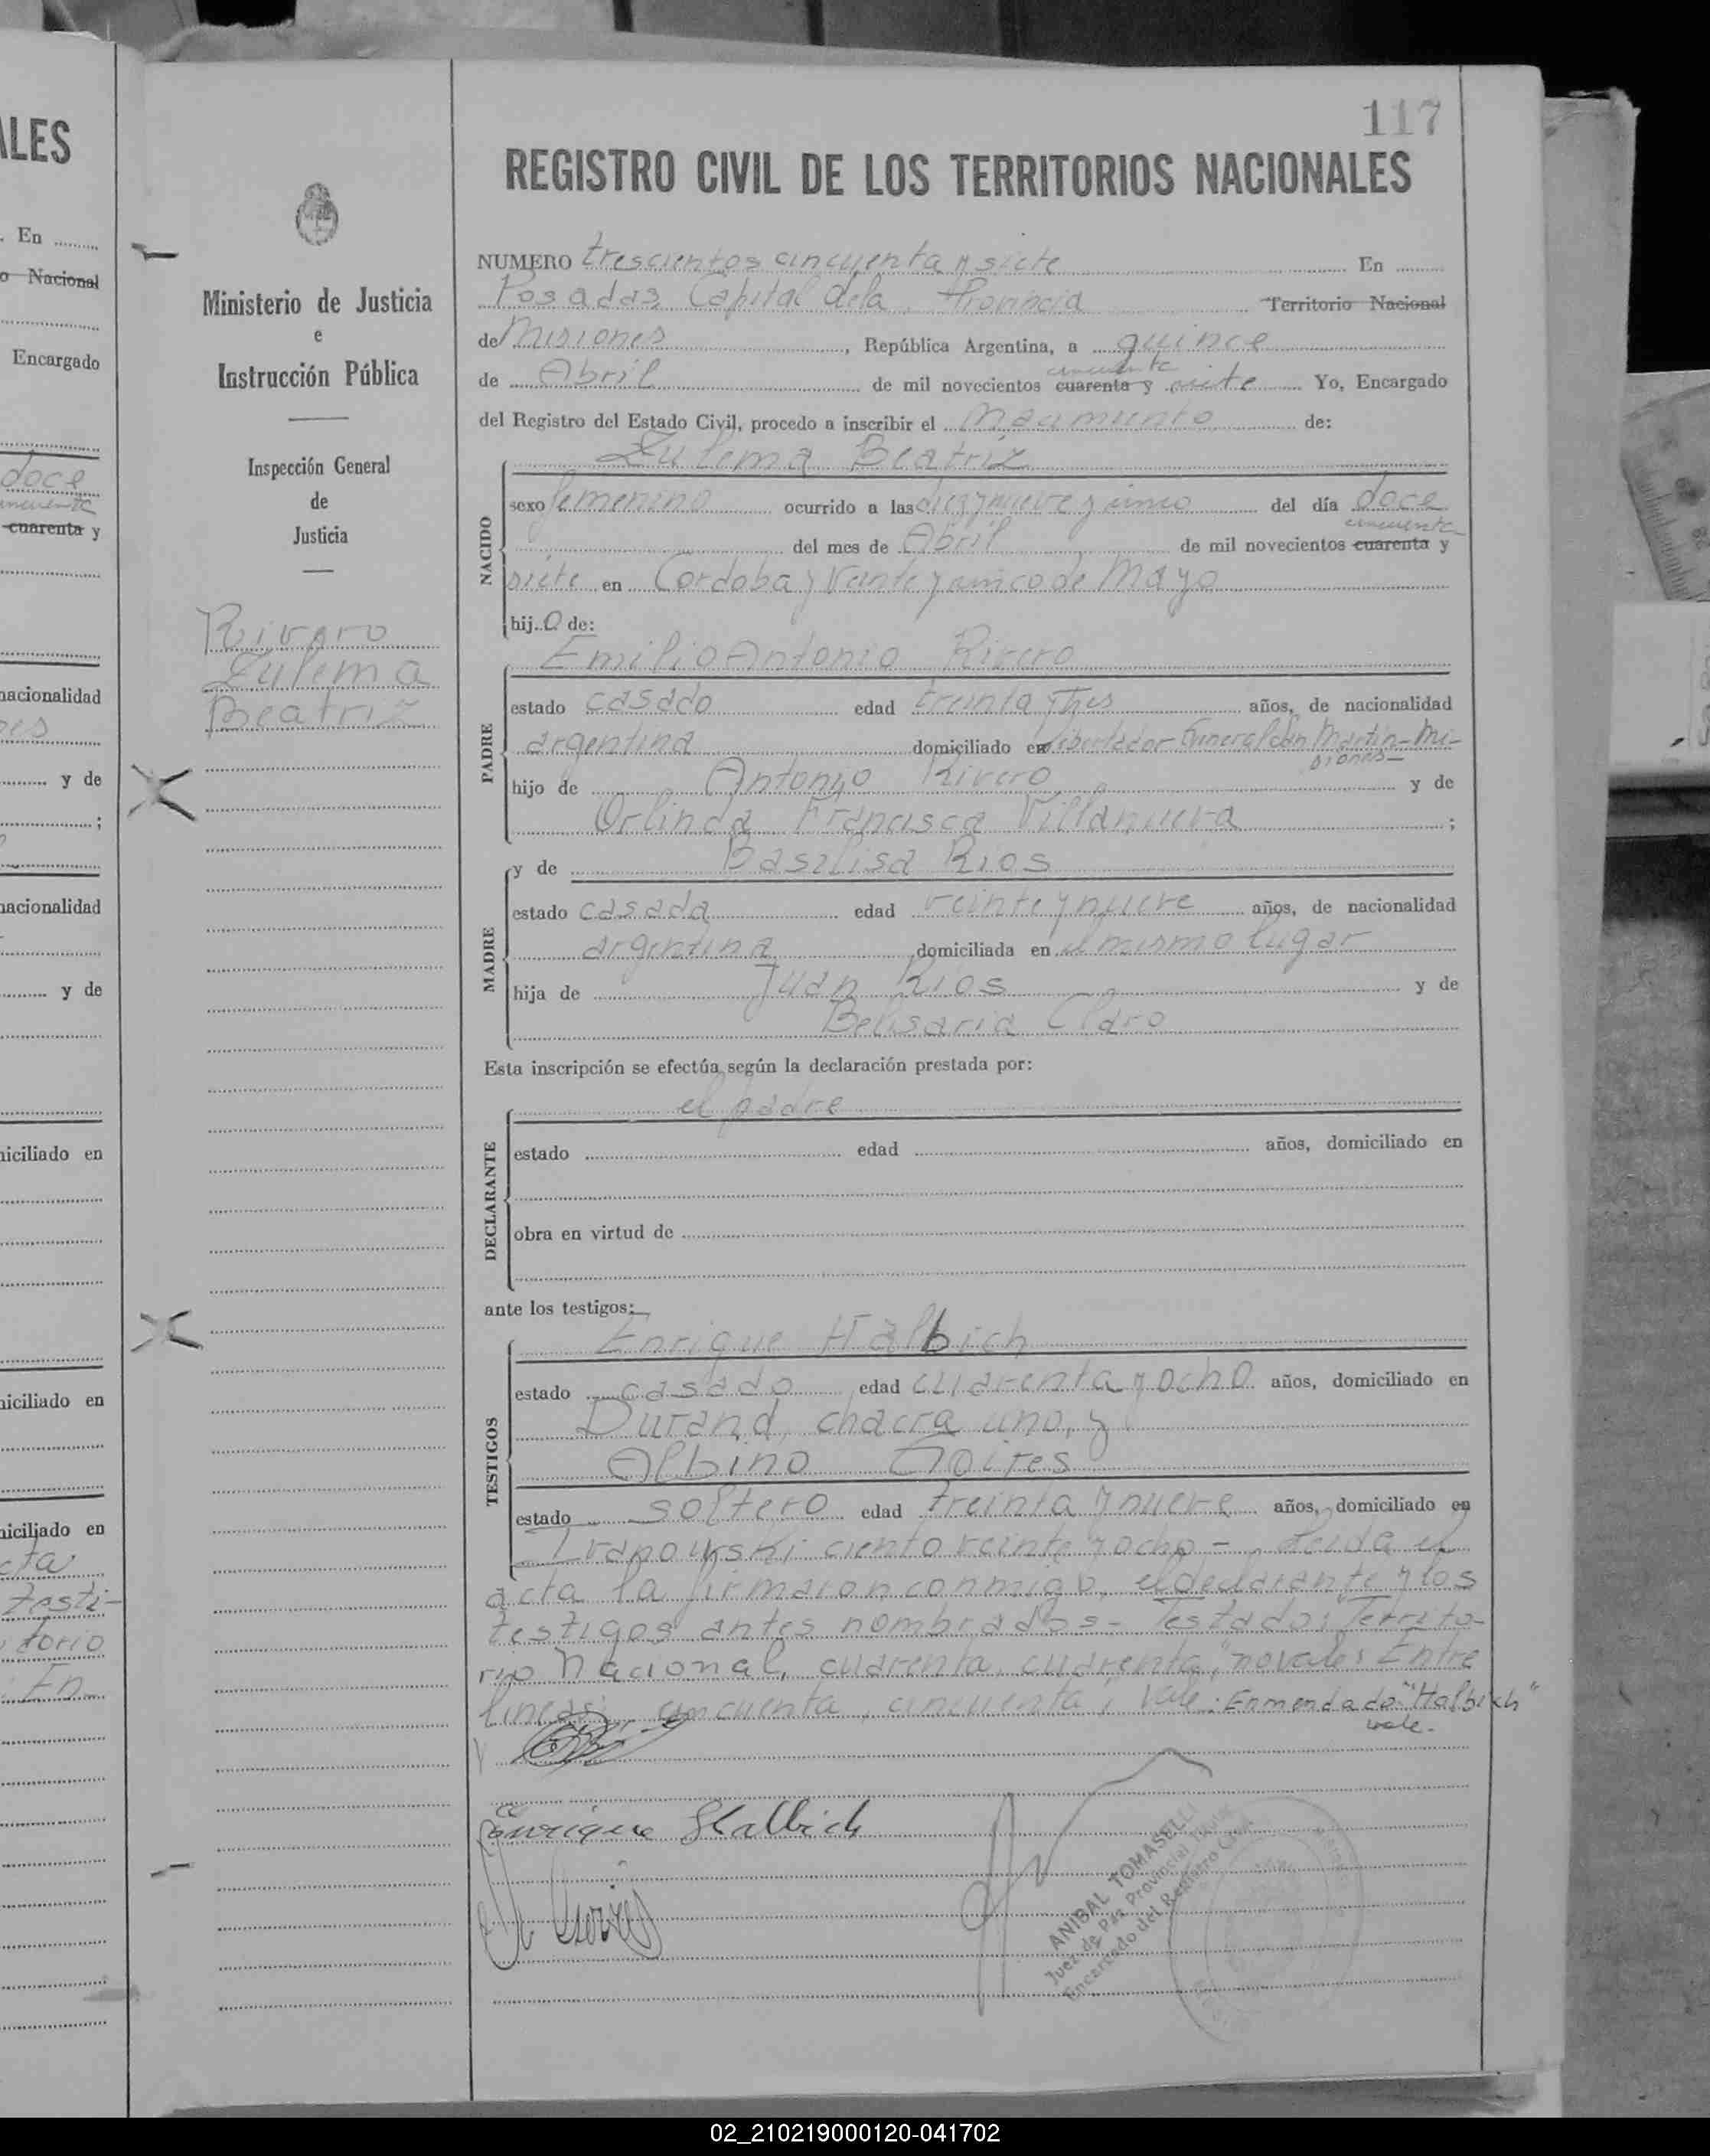 ALES
. En
o Nacional
Encargado
doce
cincuenta
cuarenta y
nacionalidad
y de
;
nacionalidad
y de
niciliado en
niciliado en
niciliado en
cta
testi-
torio
: En
Ministerio de Justicia
e
Instrucción Pública
Inspección General
de
Justicia
Rivero
Zulema
Beatriz
117
REGISTRO CIVIL DE LOS TERRITORIOS NACIONALES
NUMERO trescientos cincuenta y siete En
Posadas, Capital de la Provincia Territorio Nacional
de Misiones, República Argentina, a quince
cincuenta
de Abril de mil novecientos cuarenta y siete Yo, Encargado
del Registro del Estado Civil, procedo a inscribir el nacimiento de:
Zulema Beatriz
NACIDO
sexo femenino ocurrido a las diez y nueve y cinco del día doce
cincuenta
del mes de Abril de mil novecientos cuarenta y
siete en Cordoba y Veinte y cinco de Mayo
hij.a de:
Emilio Antonio Rivero
PADRE
estado casado edad treinta y tres años, de nacionalidad
argentina domiciliado en Libertador General San Martín-Mi-
siones-
hijo de Antonio Rivero y de
Orlinda Francisca Villanueva ;
y de Basilisa Rios
MADRE
estado casada edad veinte y nueve años, de nacionalidad
argentina domiciliada en el mismo lugar
hija de Juan Rios y de
Belisaria Claro
Esta inscripción se efectúa según la declaración prestada por:
el padre
DECLARANTE
estado edad años, domiciliado en
obra en virtud de
ante los testigos:
Enrique Halbich
TESTIGOS
estado casado edad cuarenta y ocho años, domiciliado en
Durand, chacra uno, y
Albino Goires
estado soltero edad treinta y nueve años, domiciliado en
ciento veinte y ocho - Leida el
acta la firmaron conmigo, el declarante y los
testigos antes nombrados - Testado: Territo-
rio Nacional, cuarenta, cuarenta, no vale: Entre
lineas: cincuenta, cincuenta, Vale: Enmendado "Halbich"
vale.
Enrique Halbich
ANIBAL TOMASELLI
Juez de Paz Provincial
Encargado del Registro Civil
02_210219000120-041702